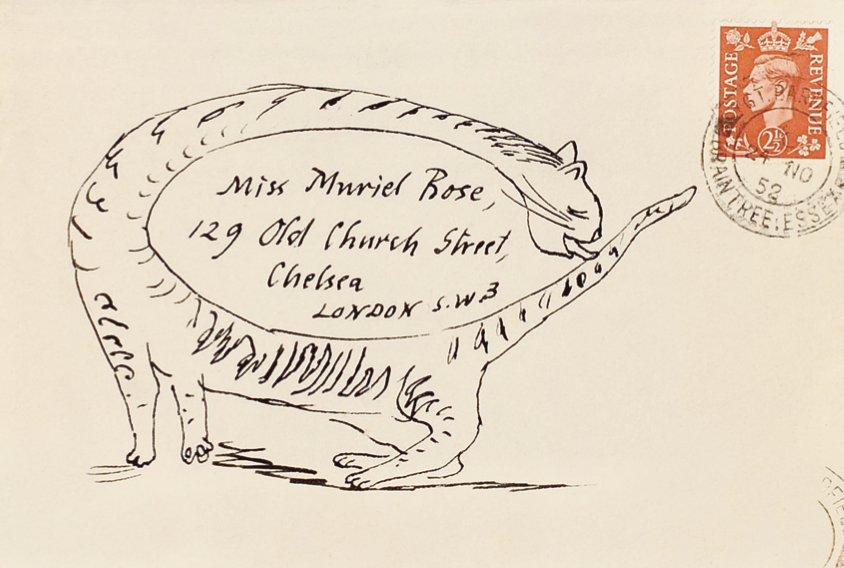 Miss Muriel Rose,
129 Old Church Street,
Chelsea
LONDON S.W.3
POSTAGE
REVENUE
2½
GT. BARDFIELD
21 NO
52
BRAINTREE·ESSEX